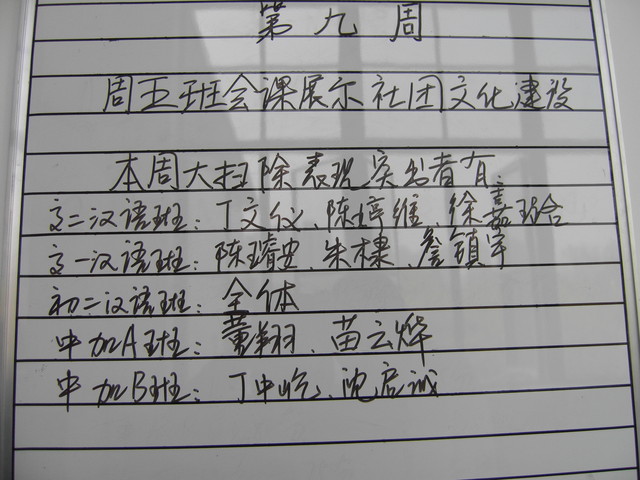 第九周
周五班会课展示社团文化建设
本周大扫除表现突出者有:
高二汉语班:丁文仪、陈婷维、徐嘉
高一汉语班:陈璿安、朱棣、詹镇宇
初二汉语班:全体
中加A班:董翔、苗云烨
中加B班:丁中屹、沈启诚